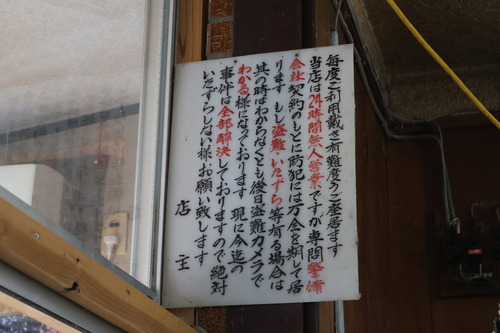 毎度ご利用戴き有難度うご座居ます
当店は24時間無人営業ですが専門警備
会社契約のもとに防犯には万全を期して居
ります もし盗難・いたずら等有る場合は
其の時はわからなくとも後日盗難カメラで
わかる様になっております 現に今迄の
事件は全部解決しておりますので絶対
いたずらしない様お願い致します
店主